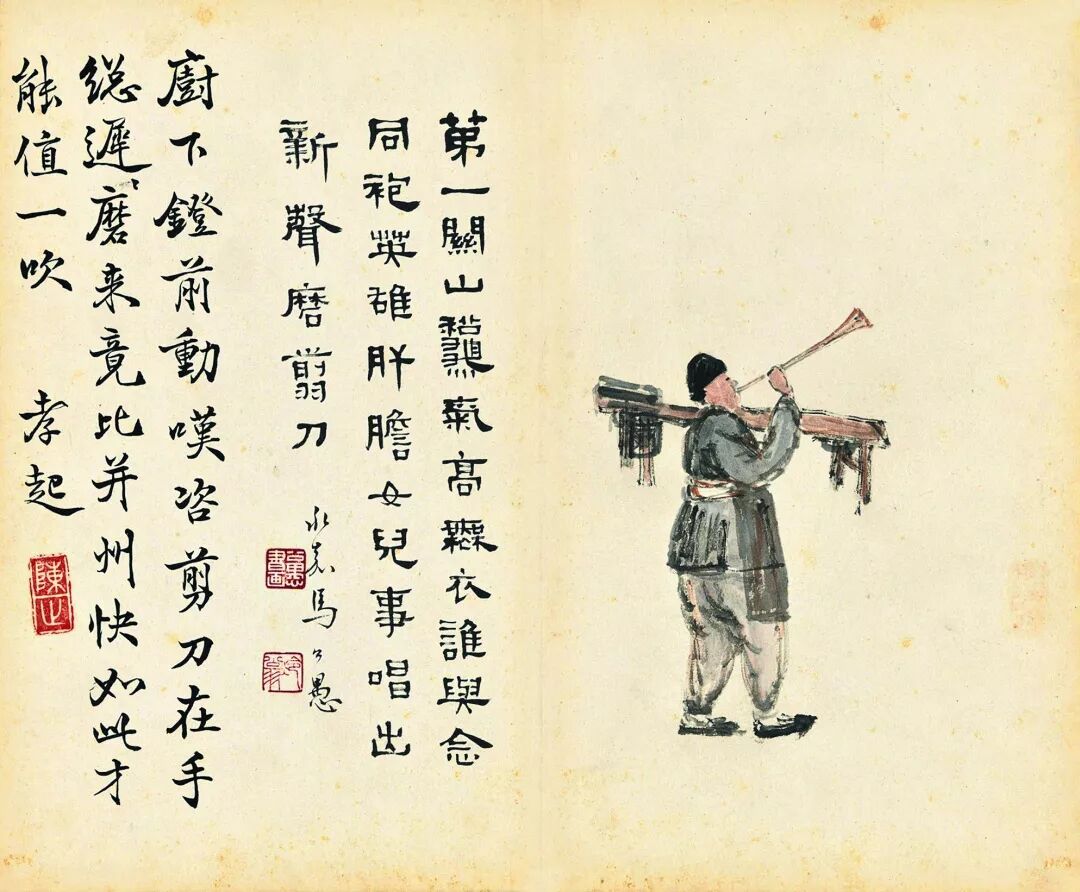 第一關山氣高無衣誰與念
同袍英雄肝膽女兒事唱出
新聲磨翦刀
永嘉馬公愚
廚下鐙前動嘆咨剪刀在手
緫遲〻磨来竟比并州快如此才
能值一吹 孝起
陳止